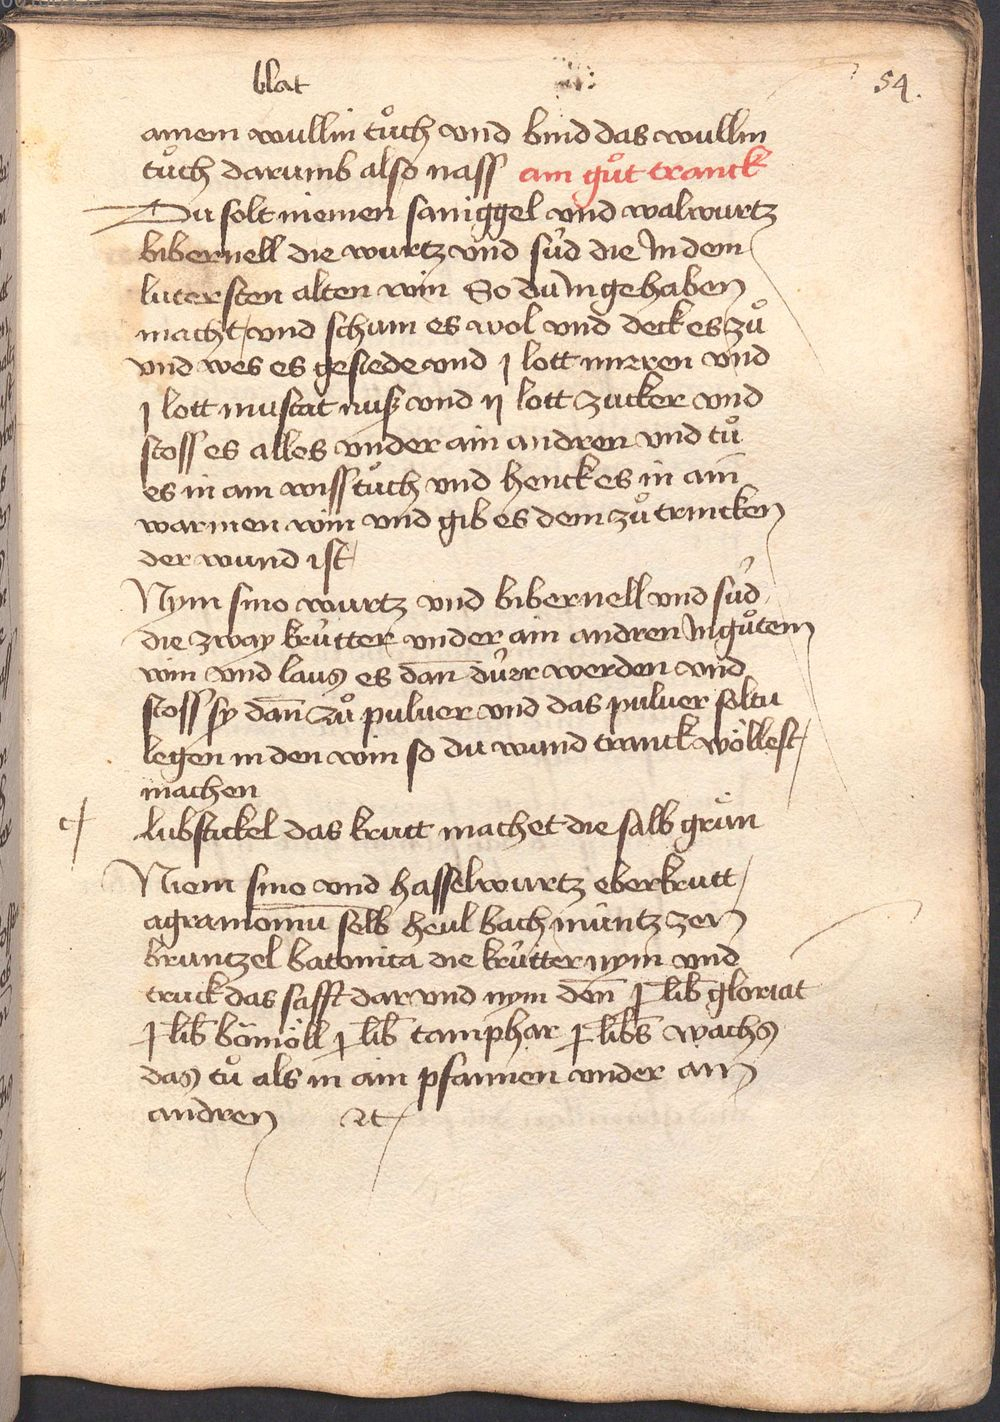 blat
54.
ainem wullin tuͦch vnd bind das wullin
tuͦch darumb also nass ain guͦt tranck
Du solt niemen saniggel vnd walwurtz
bibernell die wurtz vnd süd die In dem
lutersten alten win So du In gehaben
macht vnd schum es wol vnd deck es zuͦ
vnd wes es gesiede vnd j lott mirren vnd
j lott muscat nuß vnd ij lott zucker vnd
stoss es alles vnder ain andren vnd tuͦ
es in ain wiss tuͦch vnd henck es in ain
warmen win vnd gib es dem zuͦ trincken
der wund ist
Nym sino wurtz vnd bibernell vnd süd
die zway krütter vnder ain andren In guͦtem
win vnd laus es dan̄ dürr werden vnd
stoss sy dan̄ zuͦ puluer vnd das puluer soltu
legen in den win so du wund tranck wöllest
machen
lubstickel das krutt machet die salb gruͦn
Niem sino vnd hasselwurtz eberkrutt
agramomiu selb heul bachmüntzzen
bruntzel batonica die krütter nym vnd
truck das safft dar vnd nym den̄ j lib gloriat
j lib bömöll j lib camphar j libs wachs
das tuͦ als in ain pfannen vnder ain
andren ꝛc